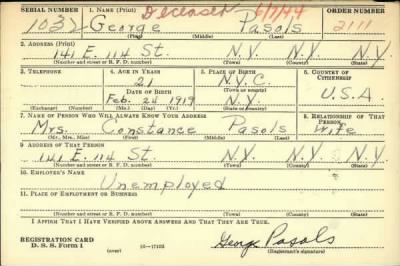 SERIAL NUMBER 1. NAME (Print) Deceased 6/7/44 ORDER NUMBER
1037 George Pasols 2111
(First) (Middle) (Last)
2. ADDRESS (Print)
141 E. 114 St. N.Y. N.Y.
(Number and street or R. F. D. number) (Town) (County) (State)
3. TELEPHONE 4. AGE IN YEARS 5. PLACE OF BIRTH 6. COUNTRY OF CITIZENSHIP
21 N.Y.C.
DATE OF BIRTH (Town or county)
Feb. 24 1919 N.Y. U.S.A.
(Exchange) (Number) (Mo.) (Day) (Yr.) (State or country)
7. NAME OF PERSON WHO WILL ALWAYS KNOW YOUR ADDRESS 8. RELATIONSHIP OF THAT PERSON
Mrs. Constance Pasols Wife
(Mr., Mrs., Miss) (First) (Middle) (Last)
9. ADDRESS OF THAT PERSON
141 E. 114 St. N.Y. N.Y. N.Y.
(Number and street or R. F. D. number) (Town) (County) (State)
10. EMPLOYER'S NAME
Unemployed
11. PLACE OF EMPLOYMENT OR BUSINESS
(Number and street or R. F. D. number) (Town) (County) (State)
I AFFIRM THAT I HAVE VERIFIED ABOVE ANSWERS AND THAT THEY ARE TRUE.
REGISTRATION CARD
D. S. S. Form 1 (over) 16—17105 George Pasols
(Registrant's signature)